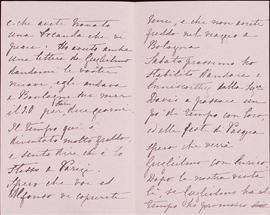 e che avete trovato
una locanda che vi
piace. Ho avuto anche
una lettera di Guglielmo
dandomi le vostre
nuove, egli andava
a Bologna
il 20 per due giorni.
Il tempo qui è
diventato molto freddo
e sento dire che è lo
stesso a Parigi
Spero che voi ed
Alfonso vi coprirete
bene, e che non avrete
freddo nel viaggio a
Bologna
Sabato prossimo ho
stabilito d'andare a
Enniscorthy dalla Sra
Davis a passare un
po' di tempo con loro,
e le feste di Pasqua
spero che verrà
Guglielmo con Enrico.
Dopo la nostra visita
lì se Guglielmo ha il
tempo